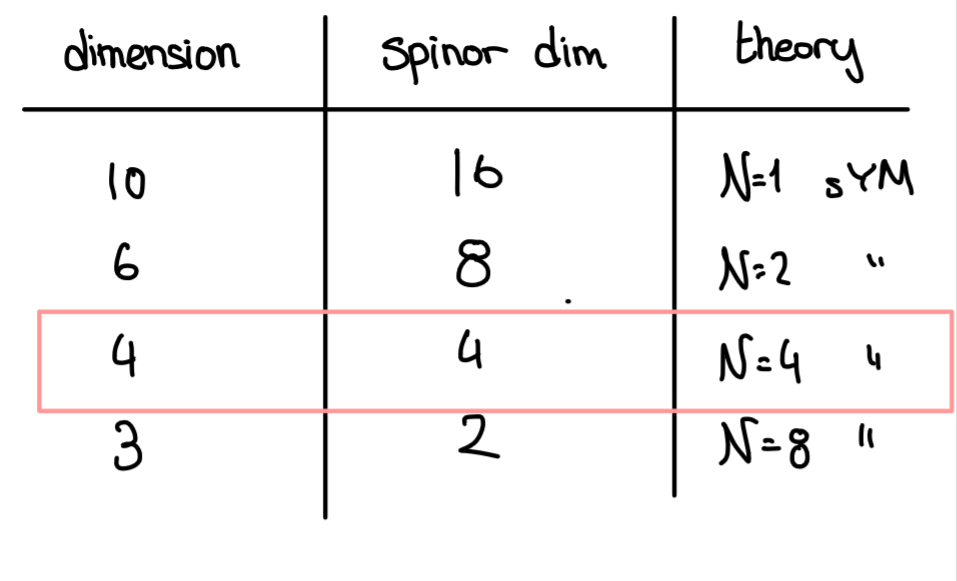 dimension spinor dim theory
10 16 N=1 sYM
6 8 N=2 "
4 4 N=4 "
3 2 N=8 "